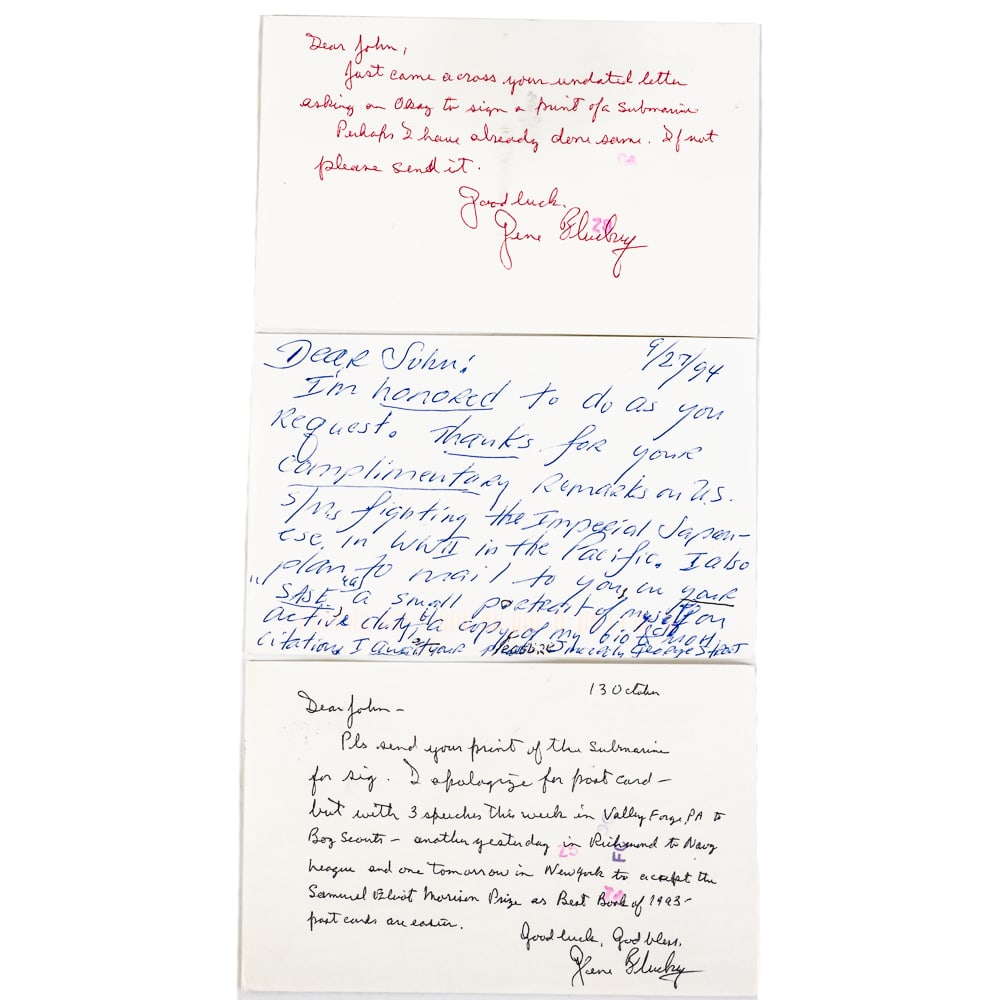 Dear John,
Just came across your undated letter
asking an Okay to sign a print of a submarine
Perhaps I have already done same. If not
please send it.
Good luck,
Gene Fluckey
Dear John! 9/27/94
I'm honored to do as you
request. Thanks for your
complimentary remarks on U.S.
S/ms fighting the Imperial Japan-
ese, in WWII in the Pacific. I also
plan to mail to you, in your
"SASE", "(a)" a small portrait of myself on
active duty & a copy of my bio &
citation. I await your Sincerely George Street
13 October
Dear John -
Pls send your print of the submarine
for sig. I apologize for post card -
but with 3 speeches this week in Valley Forge, PA to
Boy Scouts - another yesterday in Richmond to Navy
League and one tomorrow in New York to accept the
Samuel Eliot Morison Prize as Best Book of 1993 -
post cards are easier.
Good luck, God bless,
Gene Fluckey